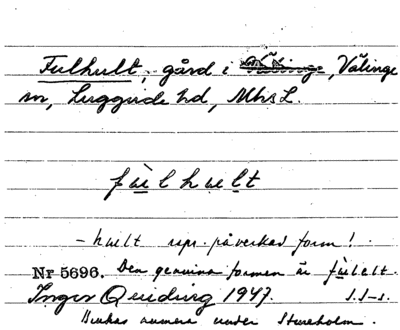 Fulhult, gård i Välinge, Välinge
sn, Luggude hd, Mhs L.
fùlhult
- hult repr. påverkad form!
Nr 5696. Den genuina formen är fùlelt.
Inger Quiding 1947. s.s-s.
Brukas numera under Stureholm.